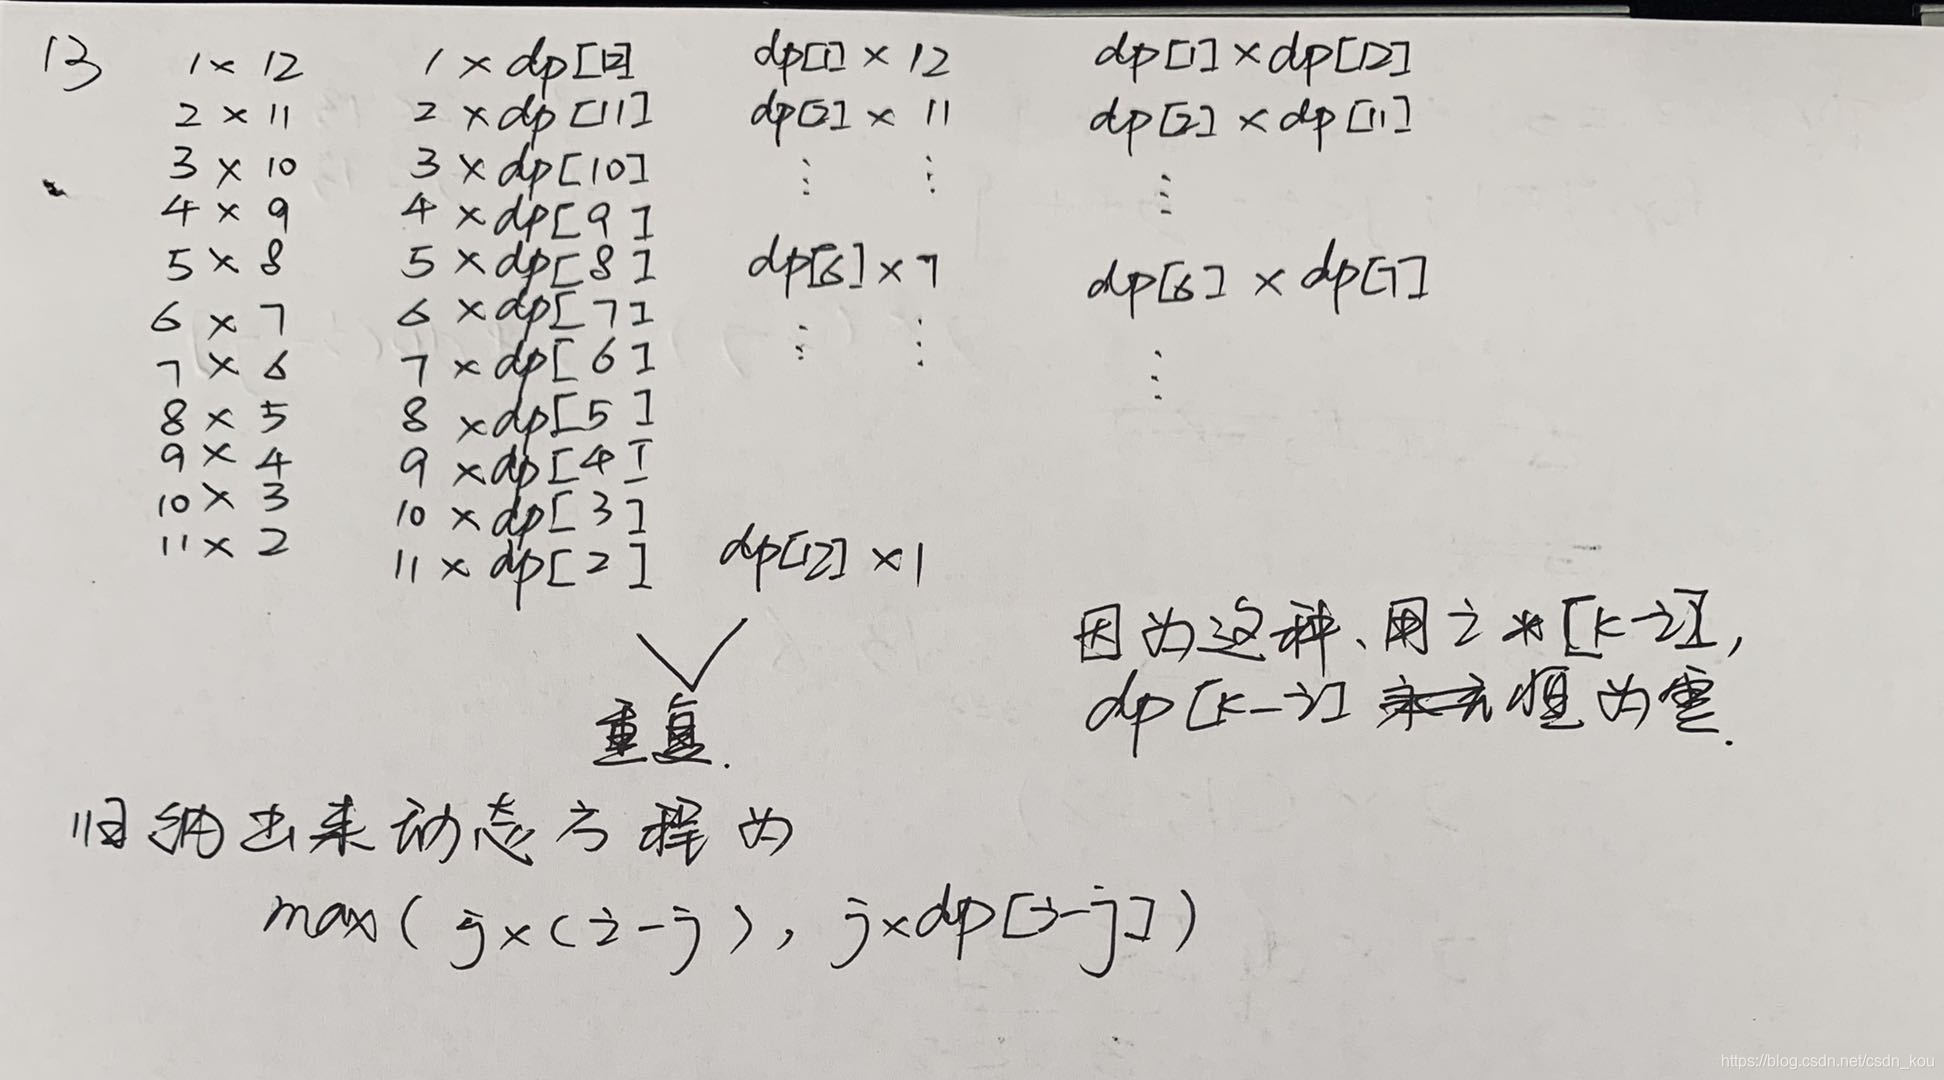 13 1 × 12 1 × dp[12] dp[1] × 12 dp[1] × dp[12]
2 × 11 2 × dp[11] dp[2] × 11 dp[2] × dp[11]
3 × 10 3 × dp[10] ⋮ ⋮ ⋮
4 × 9 4 × dp[9]
5 × 8 5 × dp[8] dp[6] × 7 dp[6] × dp[7]
6 × 7 6 × dp[7] ⋮ ⋮
7 × 6 7 × dp[6] ⋮
8 × 5 8 × dp[5]
9 × 4 9 × dp[4]
10 × 3 10 × dp[3]
11 × 2 11 × dp[2] dp[12] × 1
重复.
因为这种、用 i * [k-i],
dp[k-i] 恒为零.
归纳出来动态方程为
max( j×(i-j), j×dp[i-j])
https://blog.csdn.net/csdn_kou